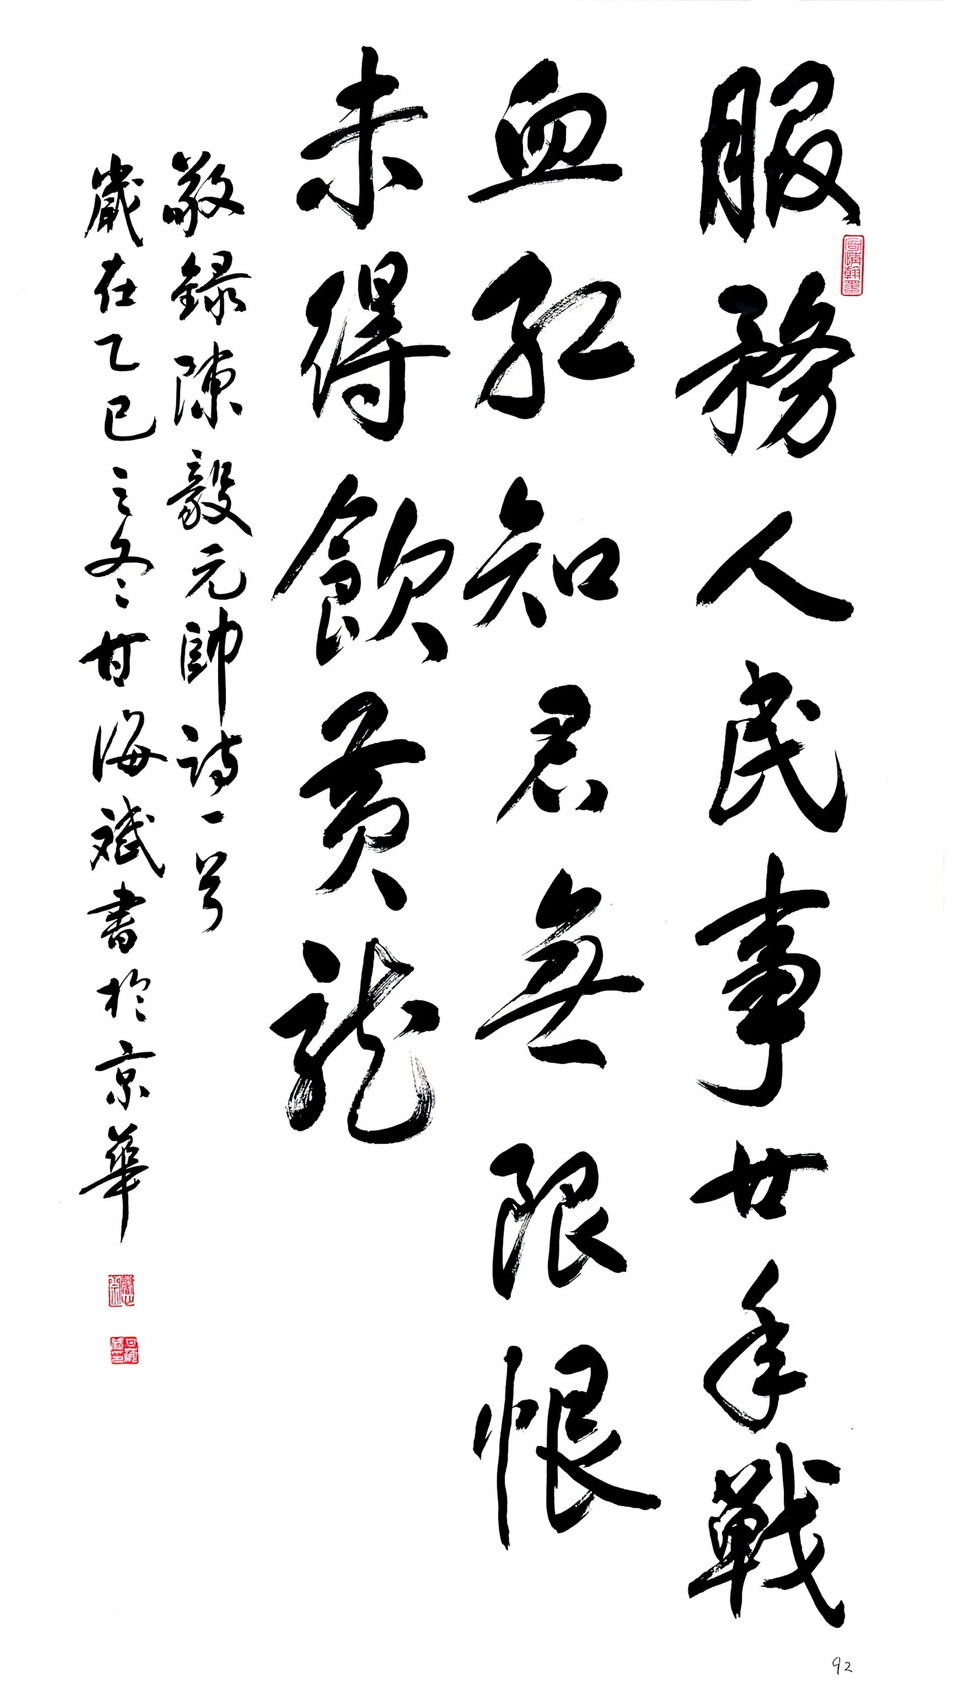 服務人民事廿年戰
血紅知君無限恨
未得飲黄龍
敬錄陳毅元帥詩一首
歲在乙巳之冬甘海斌書於京華
92